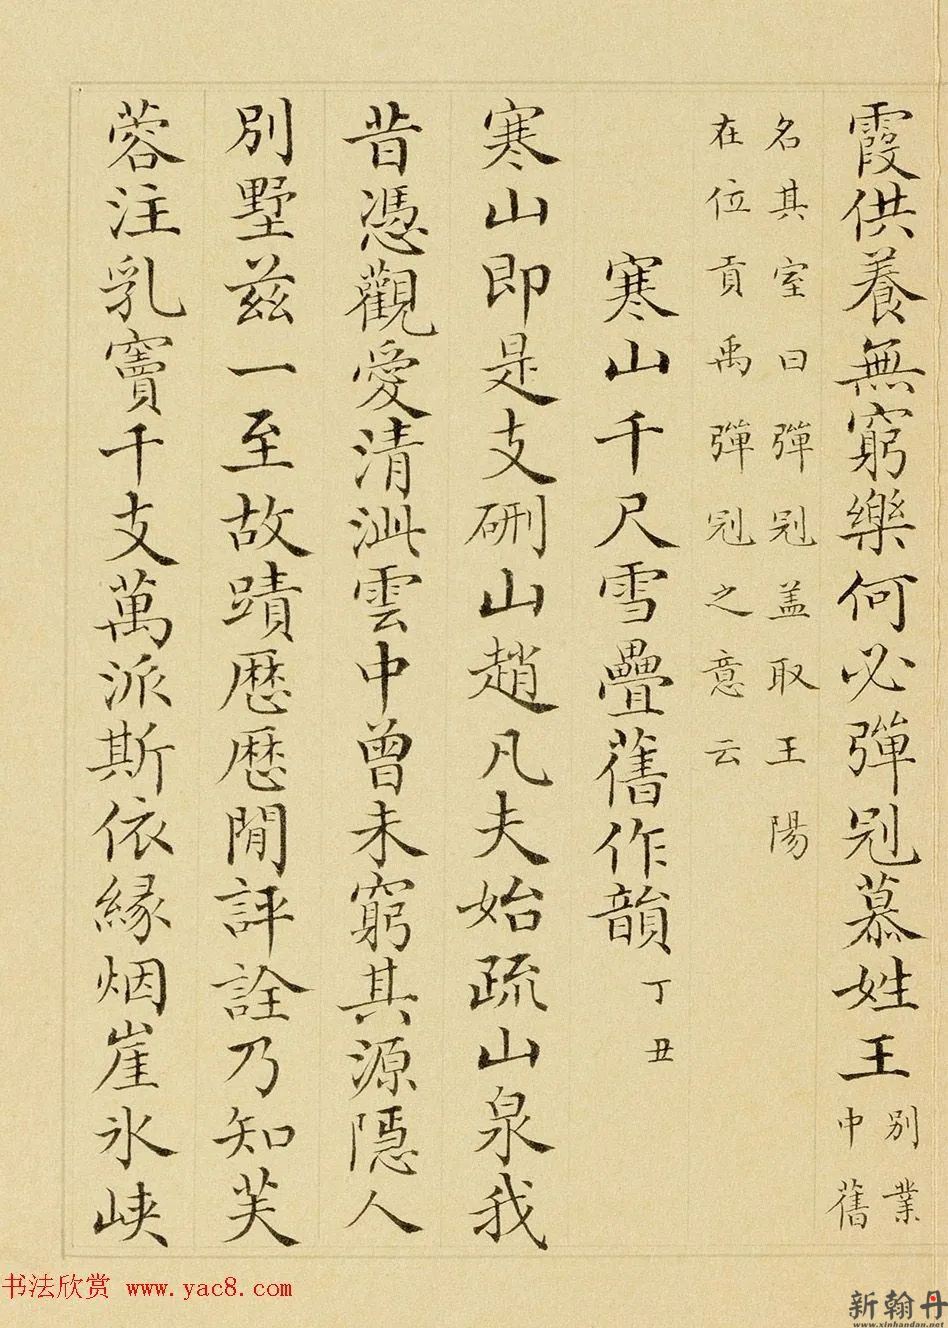 霞供養無窮樂何必彈冠慕姓王
別業
中舊
名其室曰彈冠盖取王陽
在位貢禹彈冠之意云
寒山千尺雪疊舊作韻 丁丑
寒山即是支硎山趙凡夫始疏山泉我
昔憑觀愛清泚雲中曾未窮其源隱人
別墅兹一至故蹟歷歷閒評詮乃知芙
蓉注乳竇千支萬派斯依緣烟崖氷峽
书法欣赏 www.yac8.com
新翰丹
www.xinhandan.net